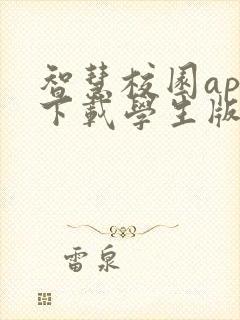 智慧校園ap
下載學生版
雷泉